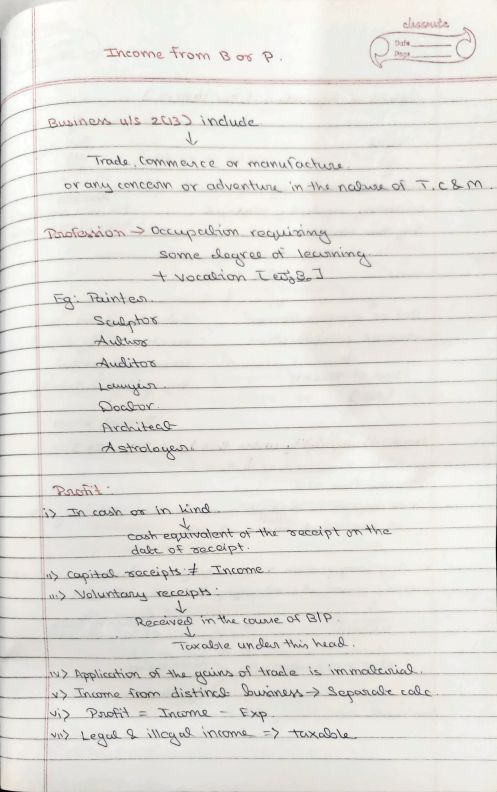 classmate
Date
Page
Income from B or P.
Business u/s 2(13) include
↓
Trade, Commerce or manufacture
or any concern or adventure in the nature of T, C & M.
Profession → Occupation requiring
some degree of learning
+ vocation [
Eg: Painter.
Sculptor
Author
Auditor
Lawyer.
Doctor.
Architect
Astrologer.
Profit:
i> In cash or in kind
↓
cash equivalent of the receipt on the
date of receipt.
ii> Capital receipts ≠ Income.
iii> Voluntary receipts:
↓
Received in the course of B/P.
↓
Taxable under this head.
iv> Application of the gains of trade is immaterial.
v> Income from distinct business → Separate calc.
vi> Profit = Income - Exp.
vii> Legal & illegal income => taxable.